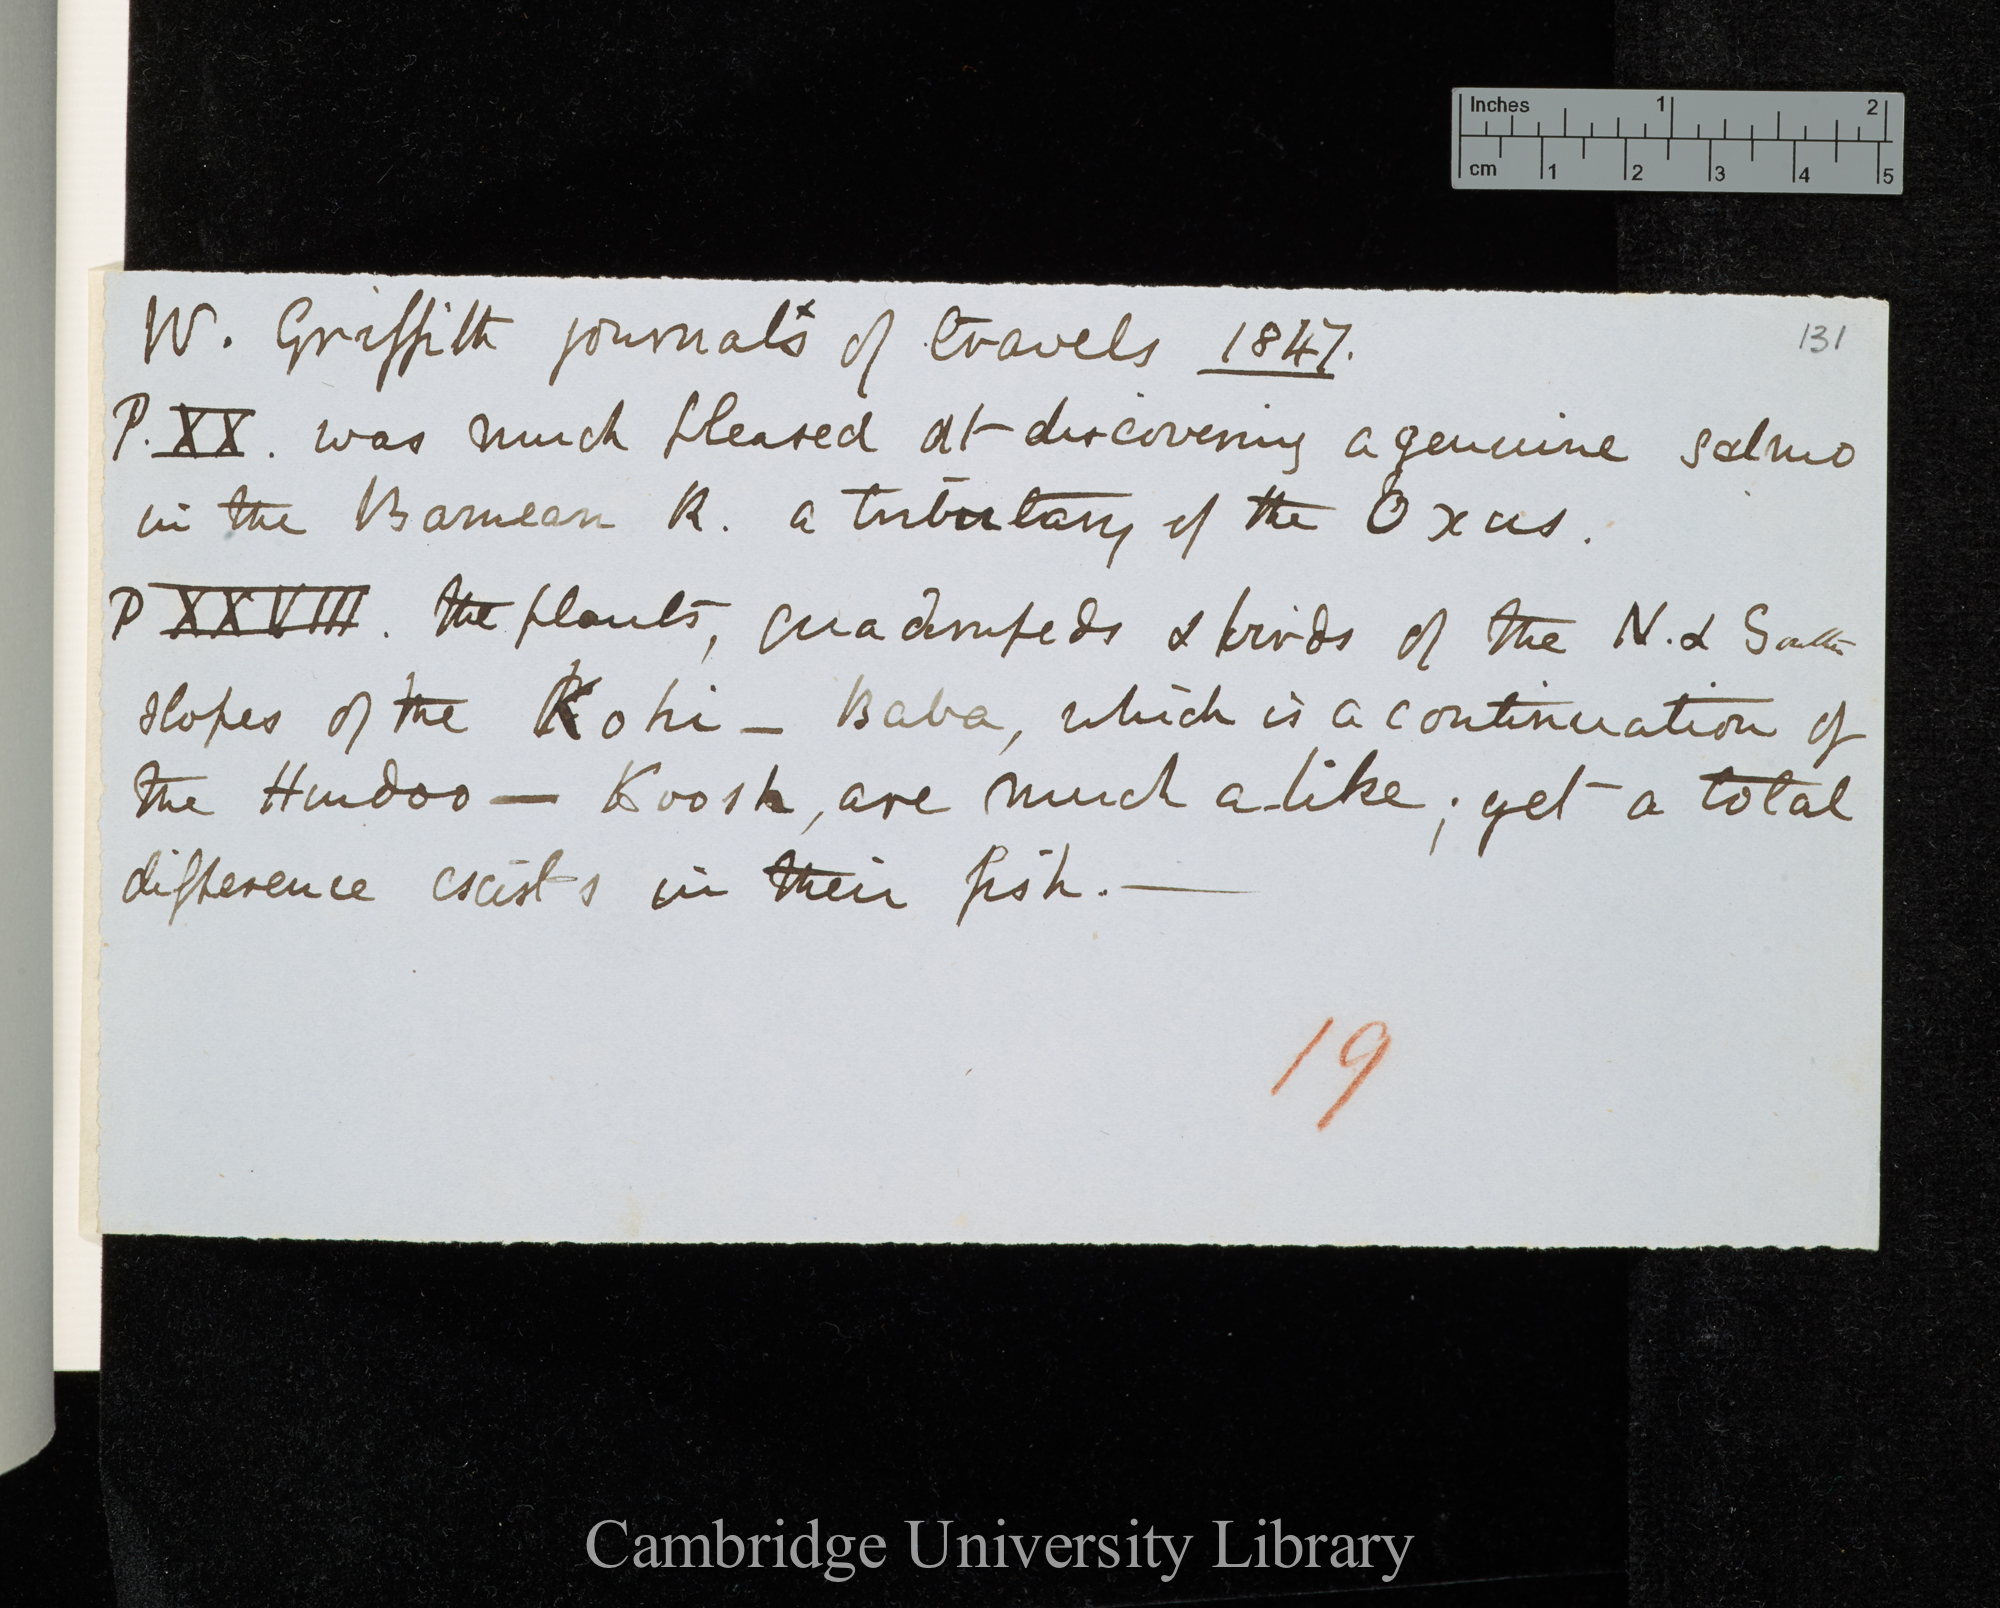 Inches 1 2
cm 1 2 3 4 5
131
W. Griffith journals of travels 1847.
P. XX. was much pleased at discovering a genuine salmo
in the Bamean R. a tributary of the Oxus.
P XXVIII. the plants, quadrupeds & birds of the N. & South
slopes of the Kohi - Baba, which is a continuation of
the Hindoo - Koosh, are much alike; yet a total
difference exists in their fish. —
19
Cambridge University Library